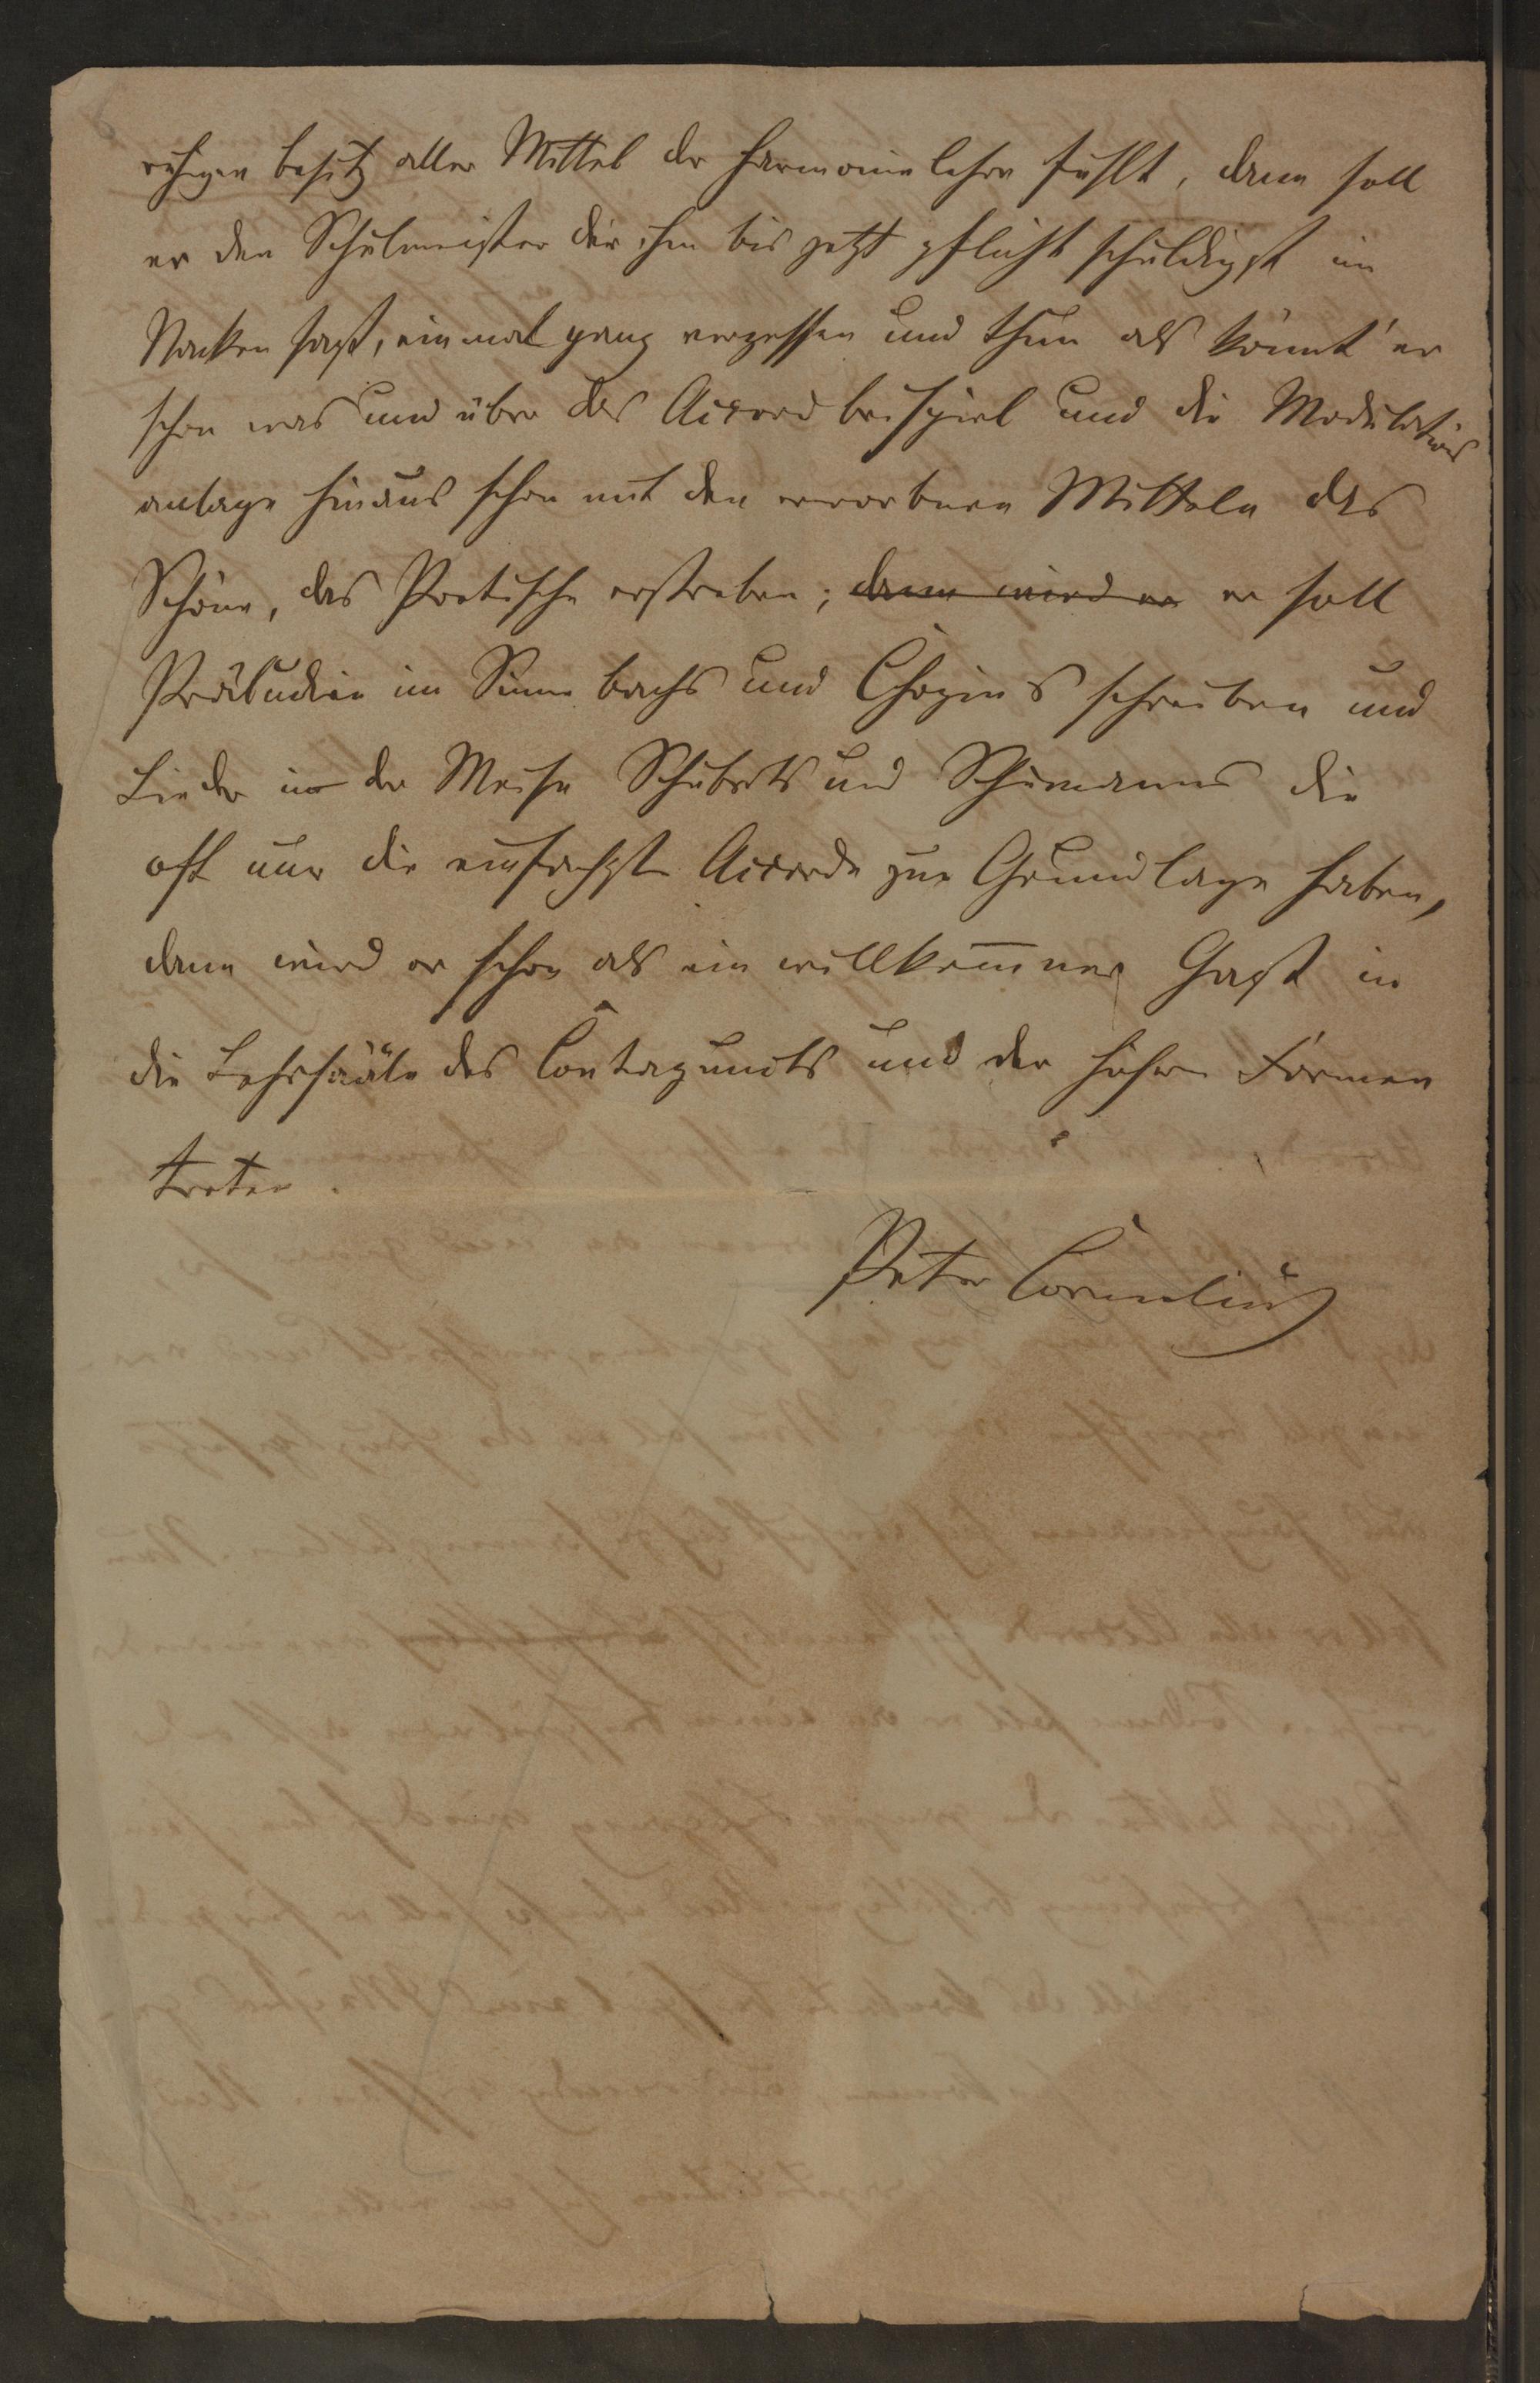 ruhigen Besitz aller Mittel der Harmonielehre fühlt, dann soll
er den Schulmeister der ihm bis jetzt pflichtschuldigst im
Nacken saß, einmal ganz vergessen und thun als könnt' er
schon was und über das Accordbeispiel und die Modulations
anlage hinaus schon mit den erworbnen Mitteln das
Schöne, das Poetische erstreben; dann wird er er soll
Präludien im Sinne Bachs und Chopins schreiben und
Lieder in der Weise Schuberts und Schumanns die
oft nur die einfachsten Accorde zur Grundlage haben,
dann wird er schon als ein willkom̅ner Gast in
die Lehrsääle des Contrapuncts und der höhern Formen
treten.
Peter Cornelius